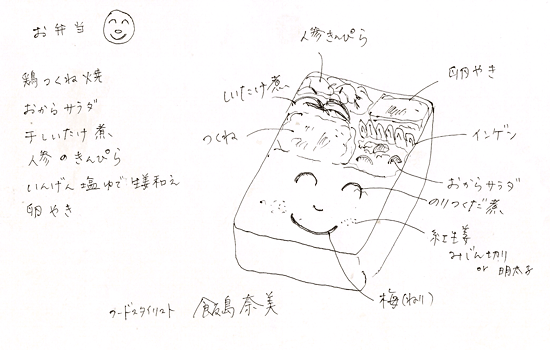 お弁当
鶏つくね焼
おからサラダ
干しいたけ煮
人参のきんぴら
いんげん塩ゆで生姜和え
卵やき
人参きんぴら
しいたけ煮
つくね
卵やき
インゲン
おからサラダ
のりつくだ煮
紅生姜
みじん切り
or 明太子
梅(ねり)
フードスタイリスト 飯島奈美